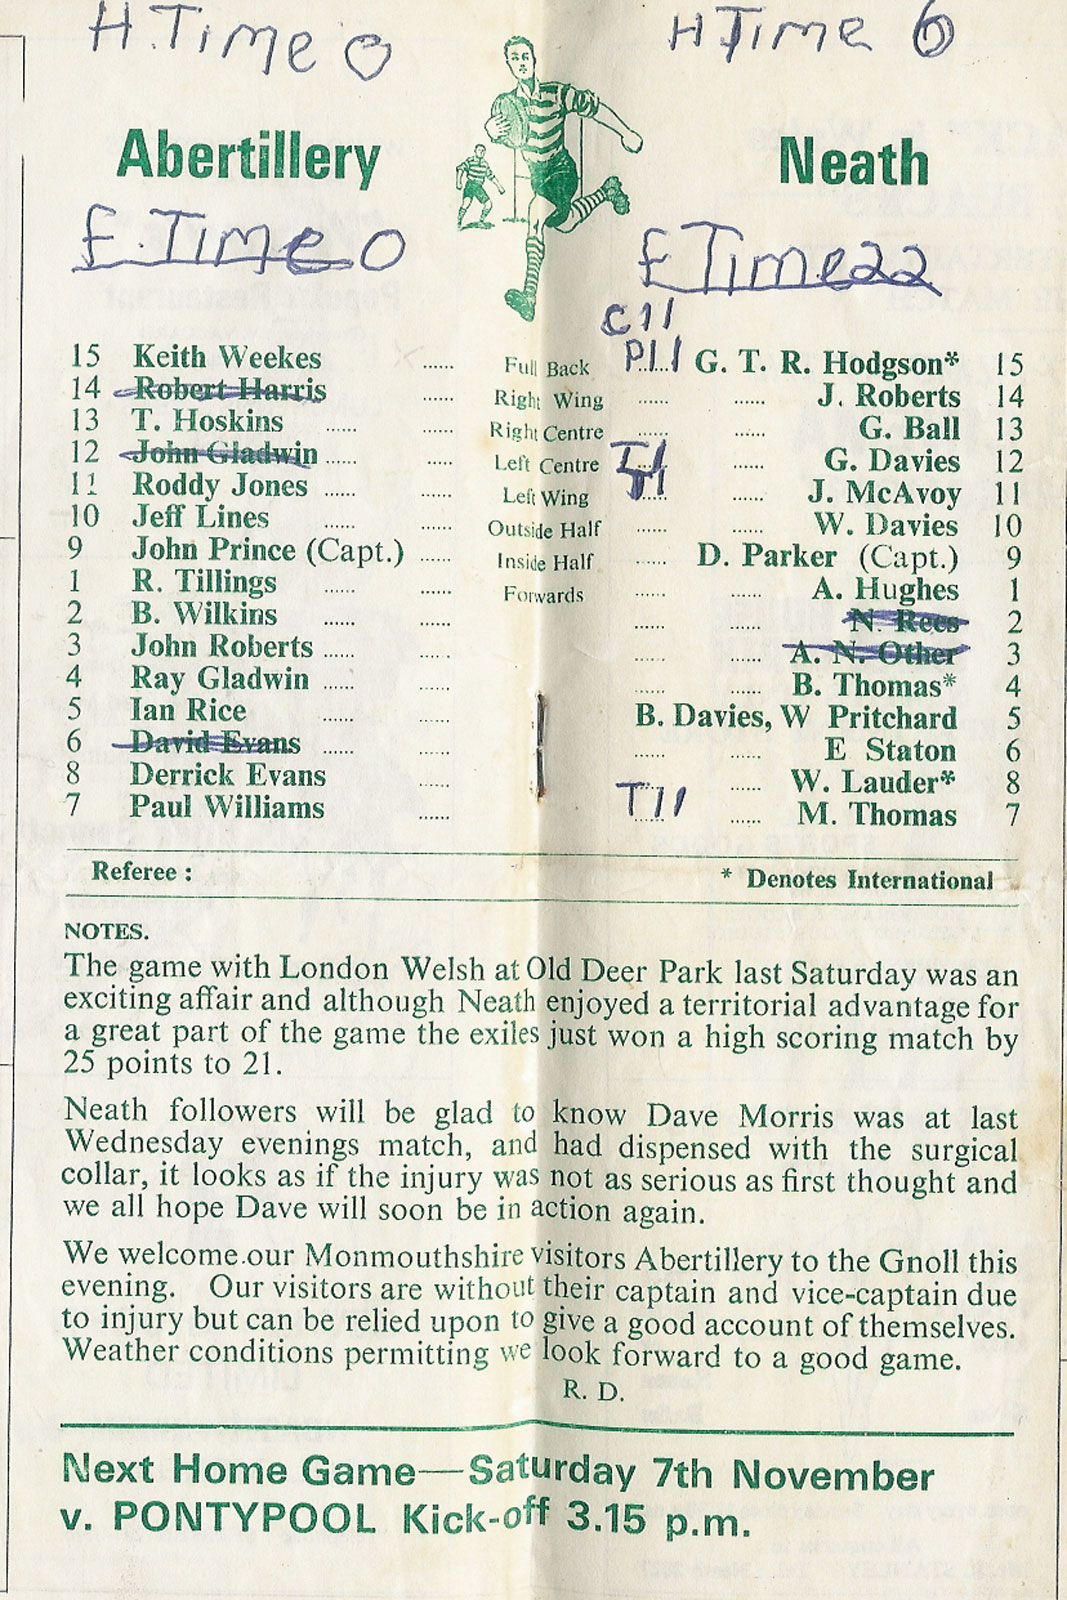 H.Time 0 H Time 6
Abertillery Neath
F.Time 0 F Time 22
C11
15 Keith Weekes ...... Full Back P11 G. T. R. Hodgson* 15
14 Robert Harris Right Wing ...... ...... J. Roberts 14
13 T. Hoskins ...... ..... Right Centre ...... ...... G. Ball 13
12 John Gladwin ...... ..... Left Centre T1 ...... G. Davies 12
11 Roddy Jones ...... ..... Left Wing T1 ...... J. McAvoy 11
10 Jeff Lines ...... ...... Outside Half ...... ...... W. Davies 10
9 John Prince (Capt.) ...... Inside Half ...... D. Parker (Capt.) 9
1 R. Tillings ...... ...... Forwards ...... ...... A. Hughes 1
2 B. Wilkins ...... ...... ...... ...... N. Rees 2
3 John Roberts ...... ..... ..... ...... A. N. Other 3
4 Ray Gladwin ...... ..... ..... ...... B. Thomas* 4
5 Ian Rice ...... ..... B. Davies, W Pritchard 5
6 David Evans ...... ..... ...... ...... E Staton 6
8 Derrick Evans ..... ...... W. Lauder* 8
7 Paul Williams ...... T11 ...... M. Thomas 7
Referee : * Denotes International
NOTES.
The game with London Welsh at Old Deer Park last Saturday was an
exciting affair and although Neath enjoyed a territorial advantage for
a great part of the game the exiles just won a high scoring match by
25 points to 21.
Neath followers will be glad to know Dave Morris was at last
Wednesday evenings match, and had dispensed with the surgical
collar, it looks as if the injury was not as serious as first thought and
we all hope Dave will soon be in action again.
We welcome.our Monmouthshire visitors Abertillery to the Gnoll this
evening. Our visitors are without their captain and vice-captain due
to injury but can be relied upon to give a good account of themselves.
Weather conditions permitting we look forward to a good game.
R. D.
Next Home Game—Saturday 7th November
v. PONTYPOOL Kick-off 3.15 p.m.